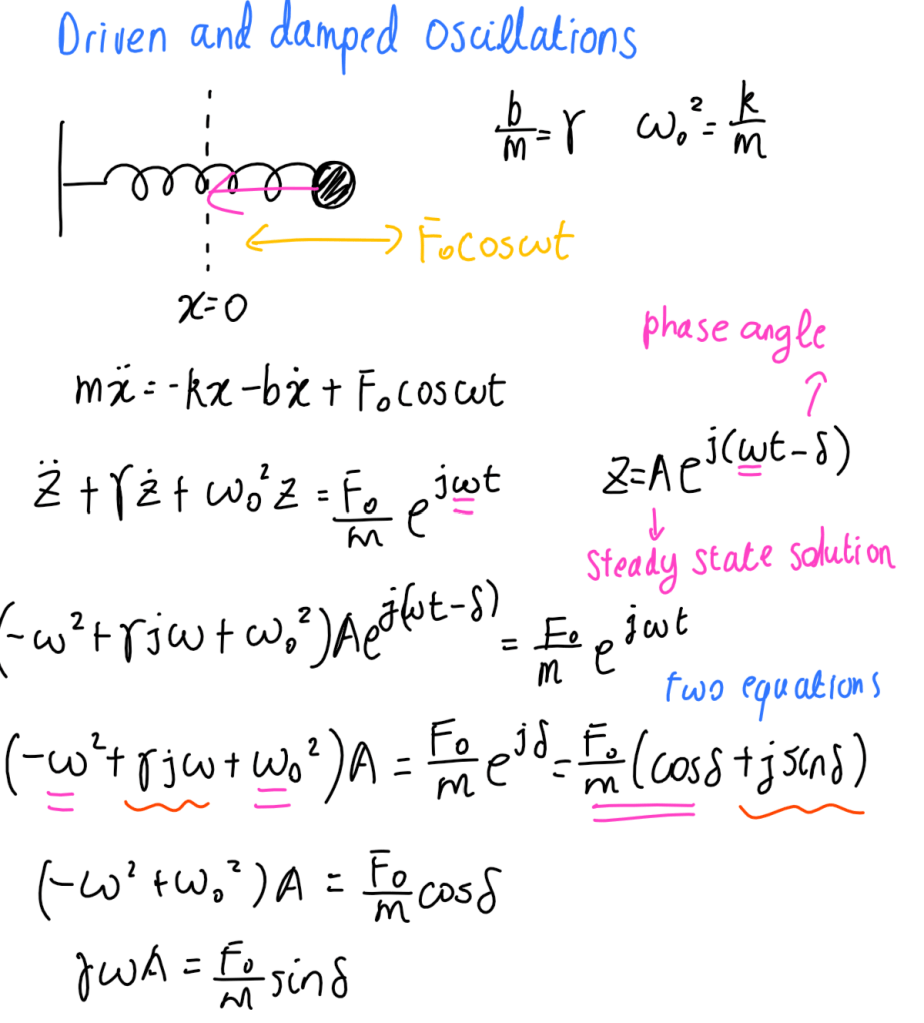 Driven and damped oscillations
b/m = γ   ω₀² = k/m
F₀cosωt
x=0
phase angle
mẍ = -kx - bẋ + F₀cosωt
z̈ + γż + ω₀²z = F₀/m e^(jωt)
z = Ae^(j(ωt-δ))
steady state solution
(-ω² + γjω + ω₀²)Ae^(j(ωt-δ)) = F₀/m e^(jωt)
two equations
(-ω² + γjω + ω₀²)A = F₀/m e^(jδ) = F₀/m (cosδ + jsinδ)
(-ω² + ω₀²)A = F₀/m cosδ
γωA = F₀/m sinδ